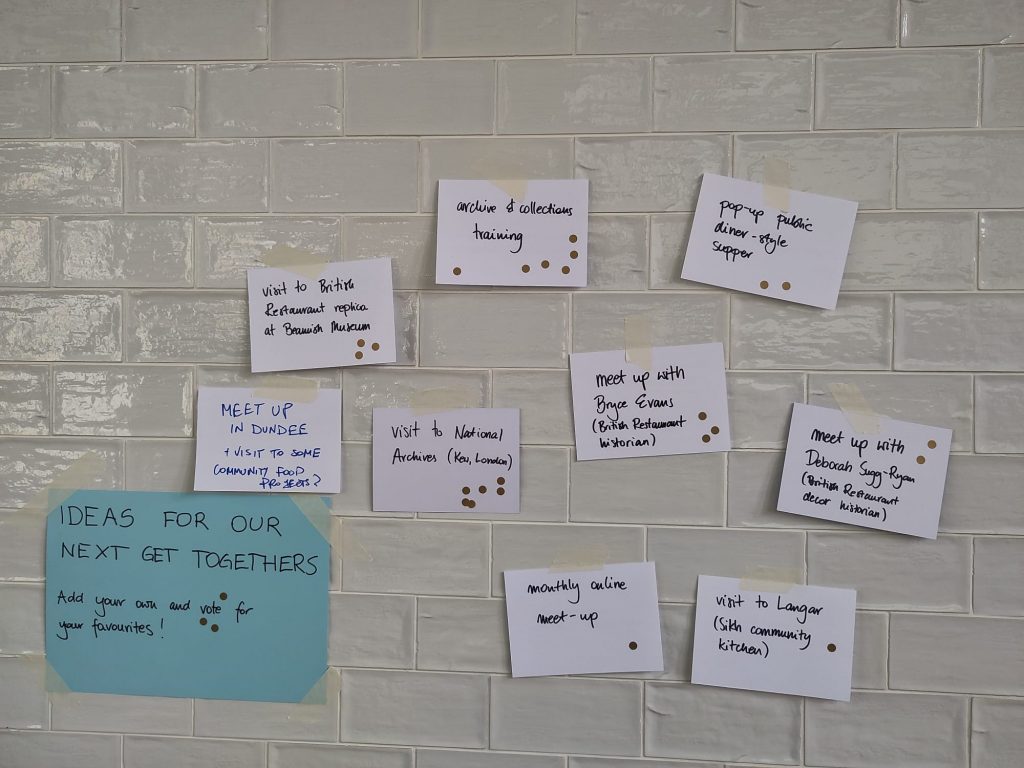 archive & collections
training
pop-up public
diner-style
supper
visit to British
Restaurant replica
at Beamish Museum
meet up with
Bryce Evans
(British Restaurant
historian)
MEET UP
IN DUNDEE
+ VISIT TO SOME
COMMUNITY FOOD
PROJECTS?
visit to National
Archives (Kew, London)
meet up with
Deborah Sugg-Ryan
(British Restaurant
decor historian)
IDEAS FOR OUR
NEXT GET TOGETHERS
Add your own and vote for
your favourites!
monthly online
meet-up
visit to Langar
(Sikh community
kitchen)